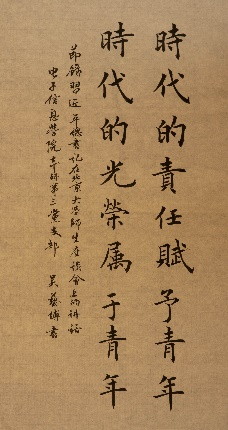 時代的責任賦予青年
時代的光榮属于青年
節錄習近平總書記在北京大學師生座談會上的讲話
电子信息學院本科第三黨支部 吴藝博書